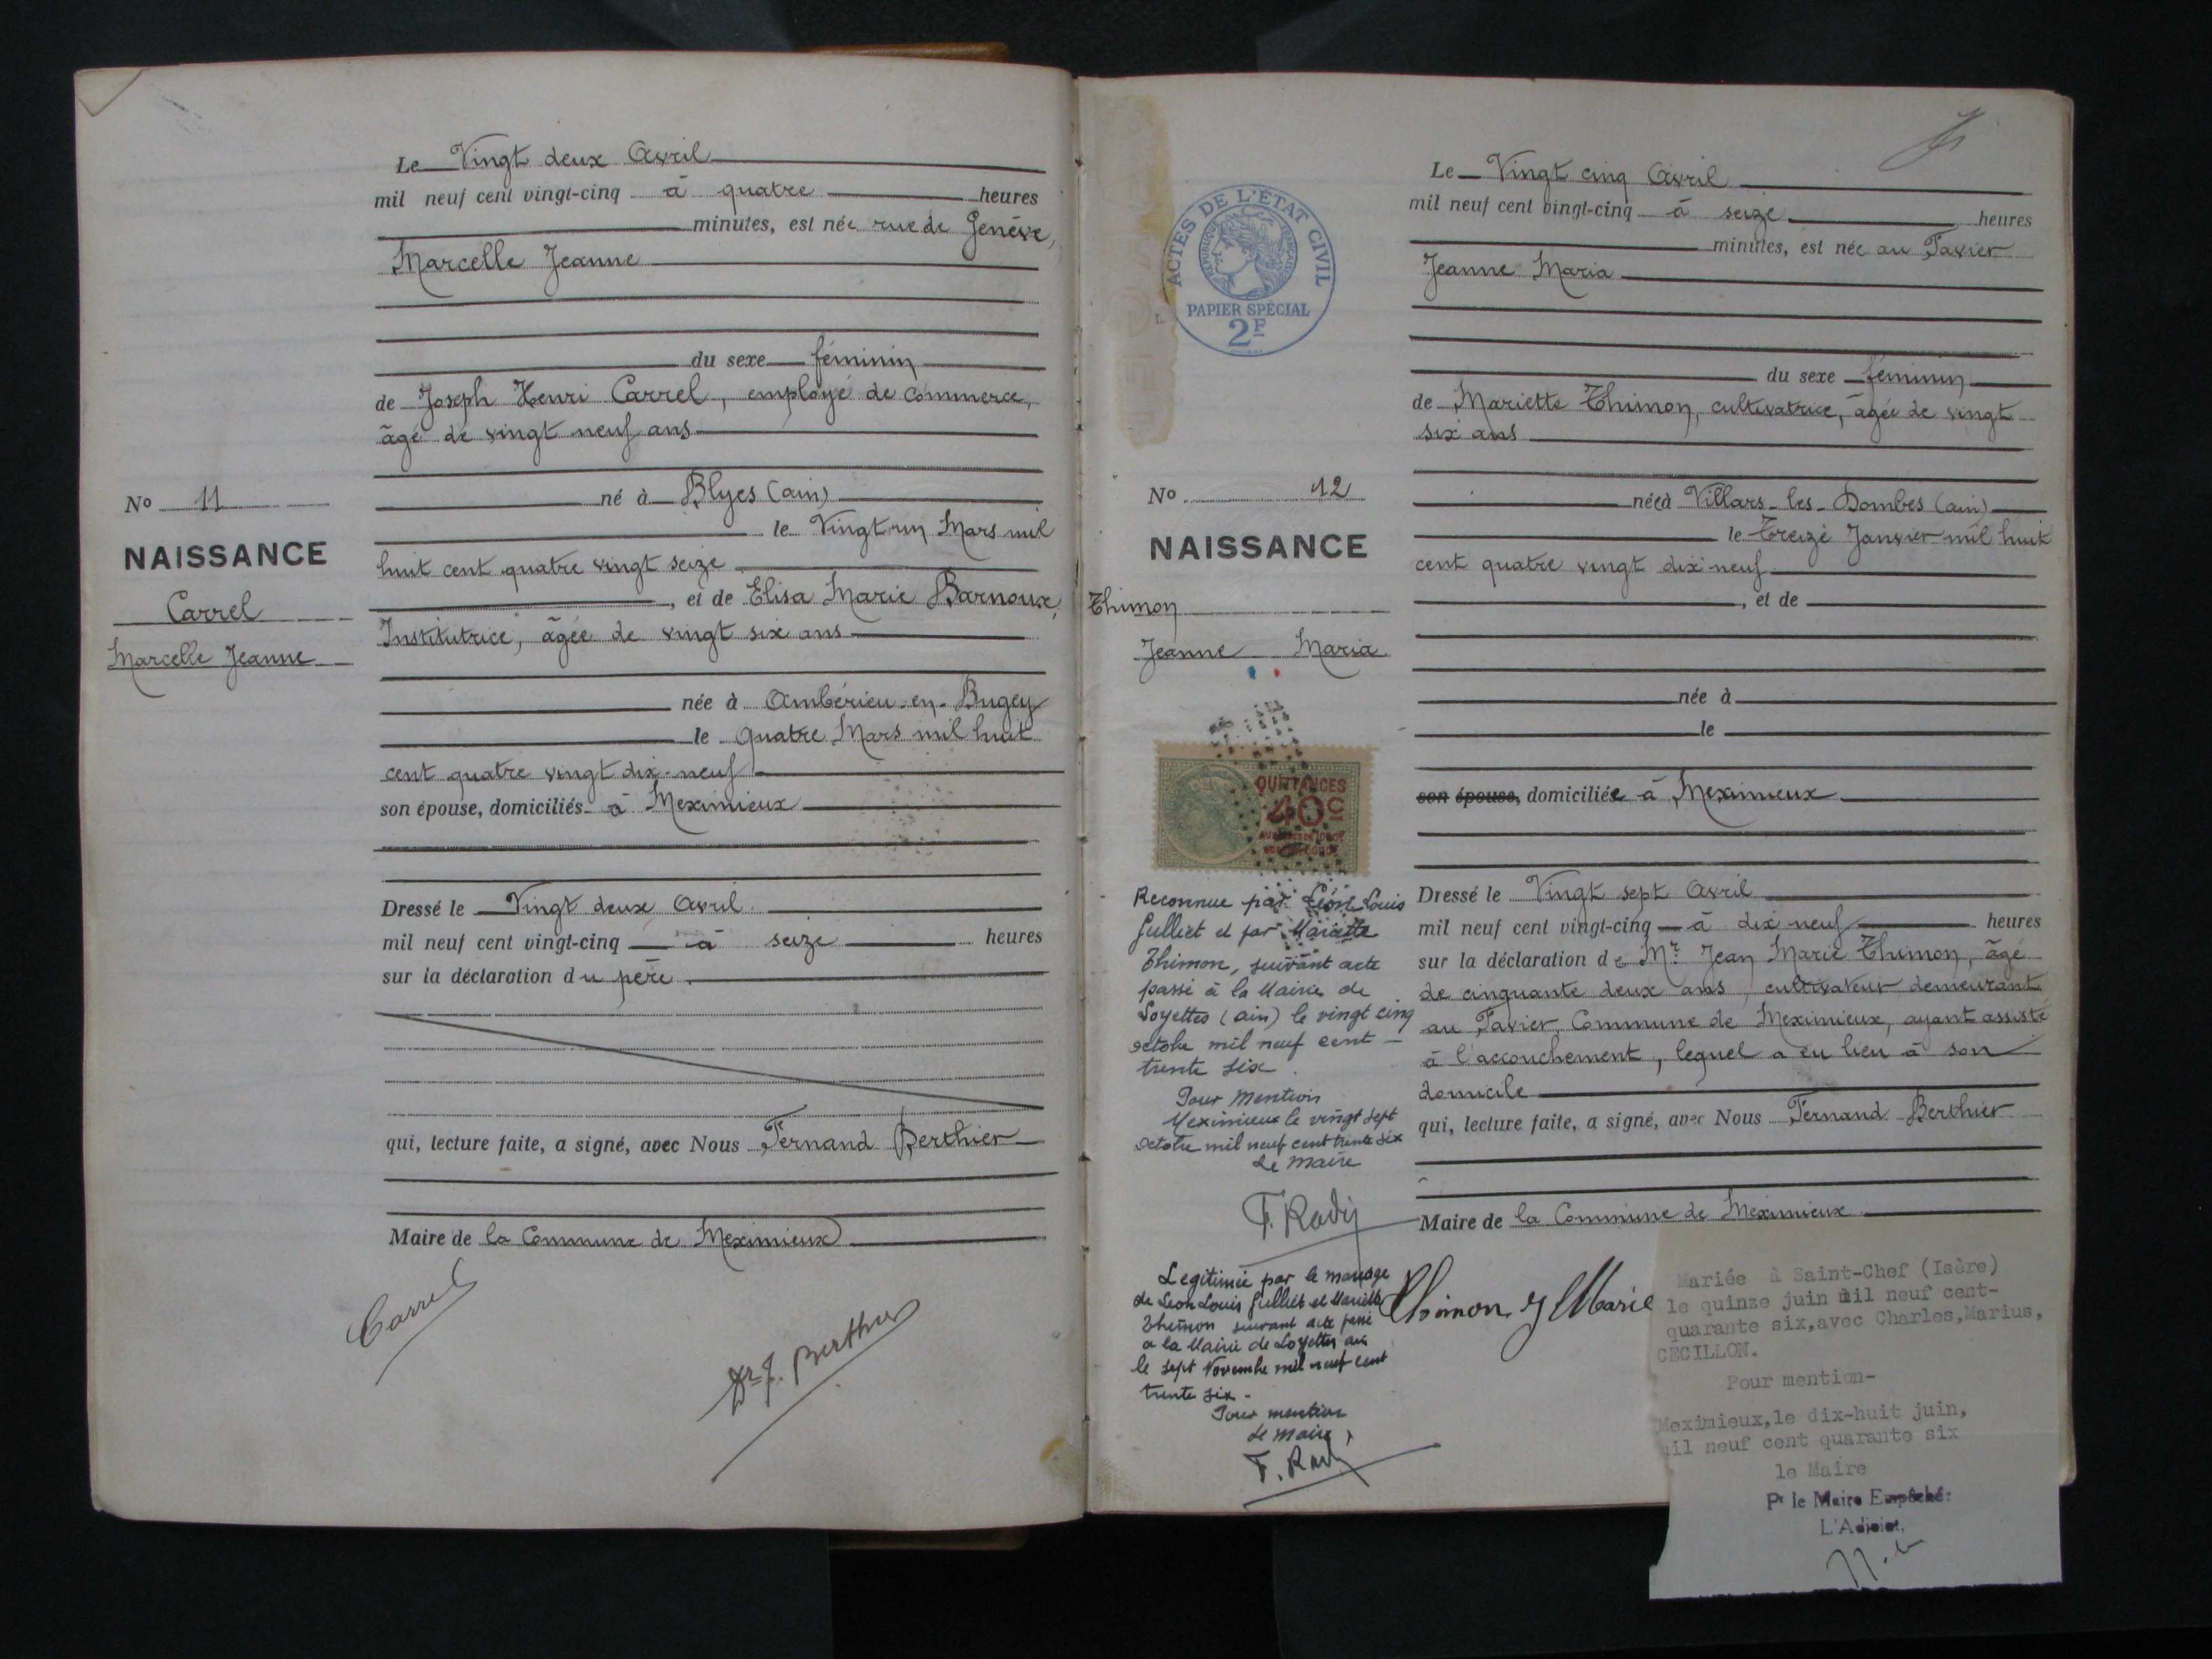 Le Vingt deux Avril
mil neuf cent vingt-cinq à quatre heures
minutes, est née rue de Genève,
Marcelle Jeanne
du sexe féminin
de Joseph Henri Carrel, employé de commerce,
âgé de vingt neuf ans
né à Blyes (ain)
le Vingt un Mars mil
huit cent quatre vingt seize
, et de Elisa Marie Barnoux,
Institutrice, âgée de vingt six ans
née à Ambérieu-en-Bugey
le quatre Mars mil huit
cent quatre vingt dix-neuf
son épouse, domiciliés à Meximieux
Dressé le Vingt deux Avril
mil neuf cent vingt-cinq à seize heures
sur la déclaration du père.
qui, lecture faite, a signé, avec Nous Fernand Berthier
Maire de la Commune de Meximieux
Carrel
Dr F. Berthier
No 11
NAISSANCE
Carrel
Marcelle Jeanne
Le Vingt cinq Avril
mil neuf cent vingt-cinq à seize heures
minutes, est née au Favier
Jeanne Maria
du sexe féminin
de Mariette Thimon, cultivatrice, âgée de vingt
six ans
née à Villars-les-Dombes (ain)
le Treize Janvier mil huit
cent quatre vingt dix-neuf
, et de
née à
le
son épouse, domiciliée à Meximieux
Dressé le Vingt sept Avril
mil neuf cent vingt-cinq à dix neuf heures
sur la déclaration de Mr Jean Marie Thimon, âgé
de cinquante deux ans, cultivateur demeurant
au Favier, Commune de Meximieux, ayant assisté
à l'accouchement, lequel a eu lieu à son
domicile
qui, lecture faite, a signé, avec Nous Fernand Berthier
Maire de la Commune de Meximieux
Thimon J Marie
ACTES DE L'ÉTAT CIVIL
RÉPUBLIQUE FRANÇAISE
PAPIER SPÉCIAL
2F
No 12
NAISSANCE
Thimon
Jeanne Maria
QUITTANCES
40c
Reconnue par Léon Louis
Gulliet et par Mariette
Thimon, suivant acte
passé à la Mairie de
Loyettes (ain) le vingt cinq
octobre mil neuf cent
trente six.
Pour Mention
Meximieux le vingt sept
octobre mil neuf cent trente six
Le Maire
F. Rody
Legitimée par le mariage
de Léon Louis Gulliet et Mariette
Thimon suivant acte passé
a la Mairie de Loyettes ain
le sept Novembre mil neuf cent
trente six -
Pour mention
Le Maire,
Mariée à Saint-Chef (Isère)
le quinze juin mil neuf cent-
quarante six, avec Charles, Marius,
CECILLON.
Pour mention-
Meximieux, le dix-huit juin,
mil neuf cent quarante six
le Maire
Pr le Maire Empêché:
L'Adjoint,